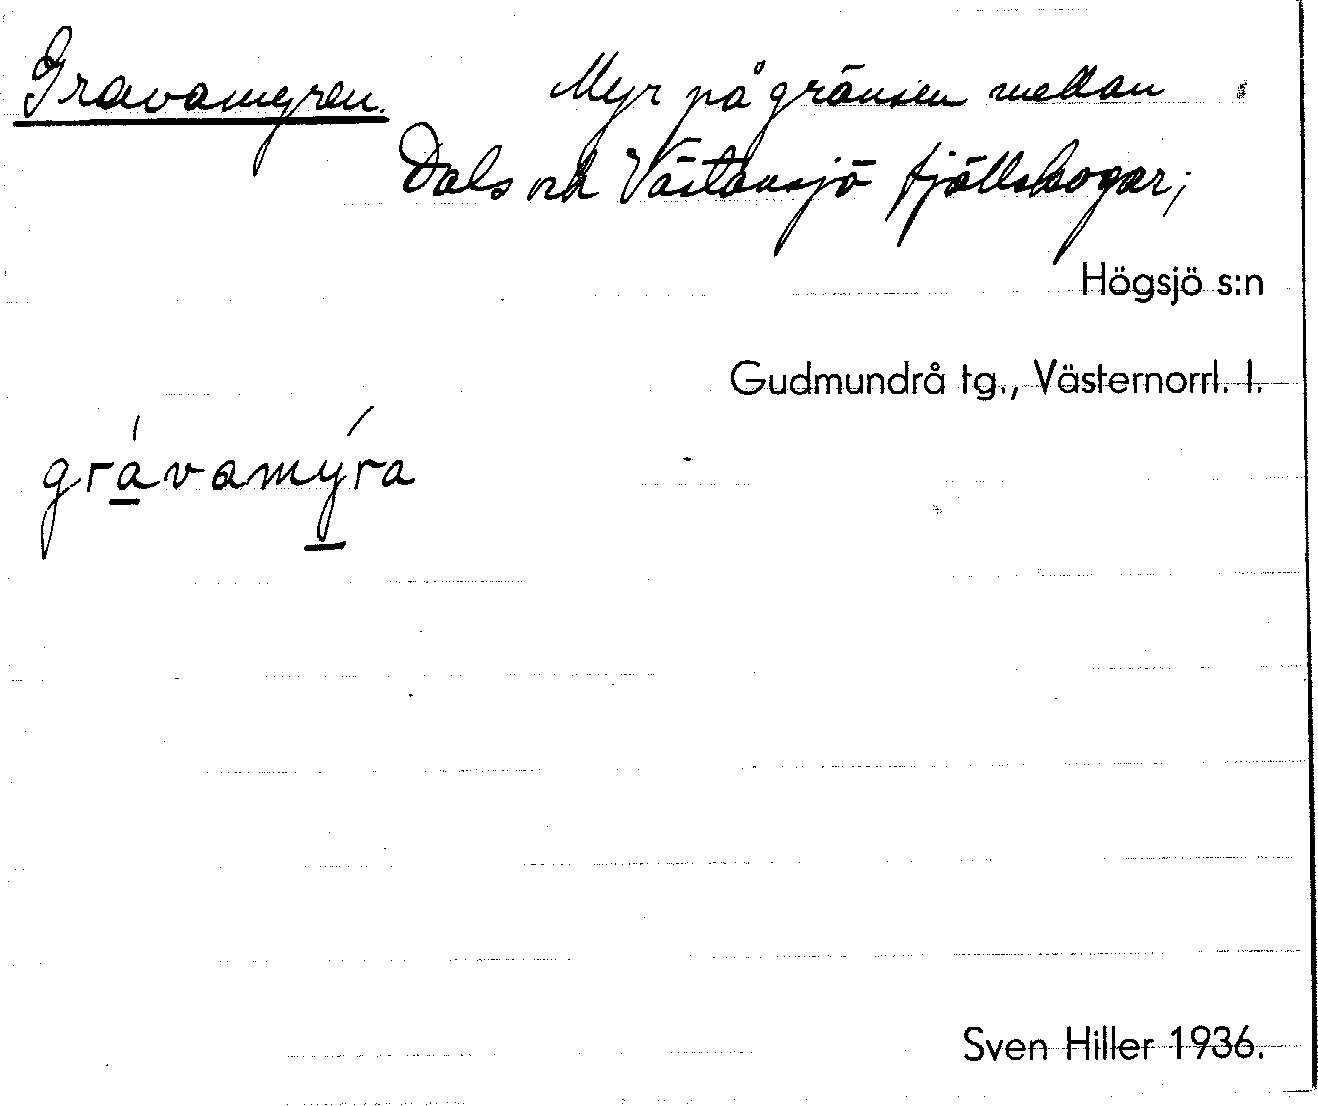 Gravamyren. Myr på gränsen mellan
Dals och Västansjö fjällskogar;
Högsjö s:n
Gudmundrå tg., Västernorrl. l.
grávamýra
Sven Hiller 1936.